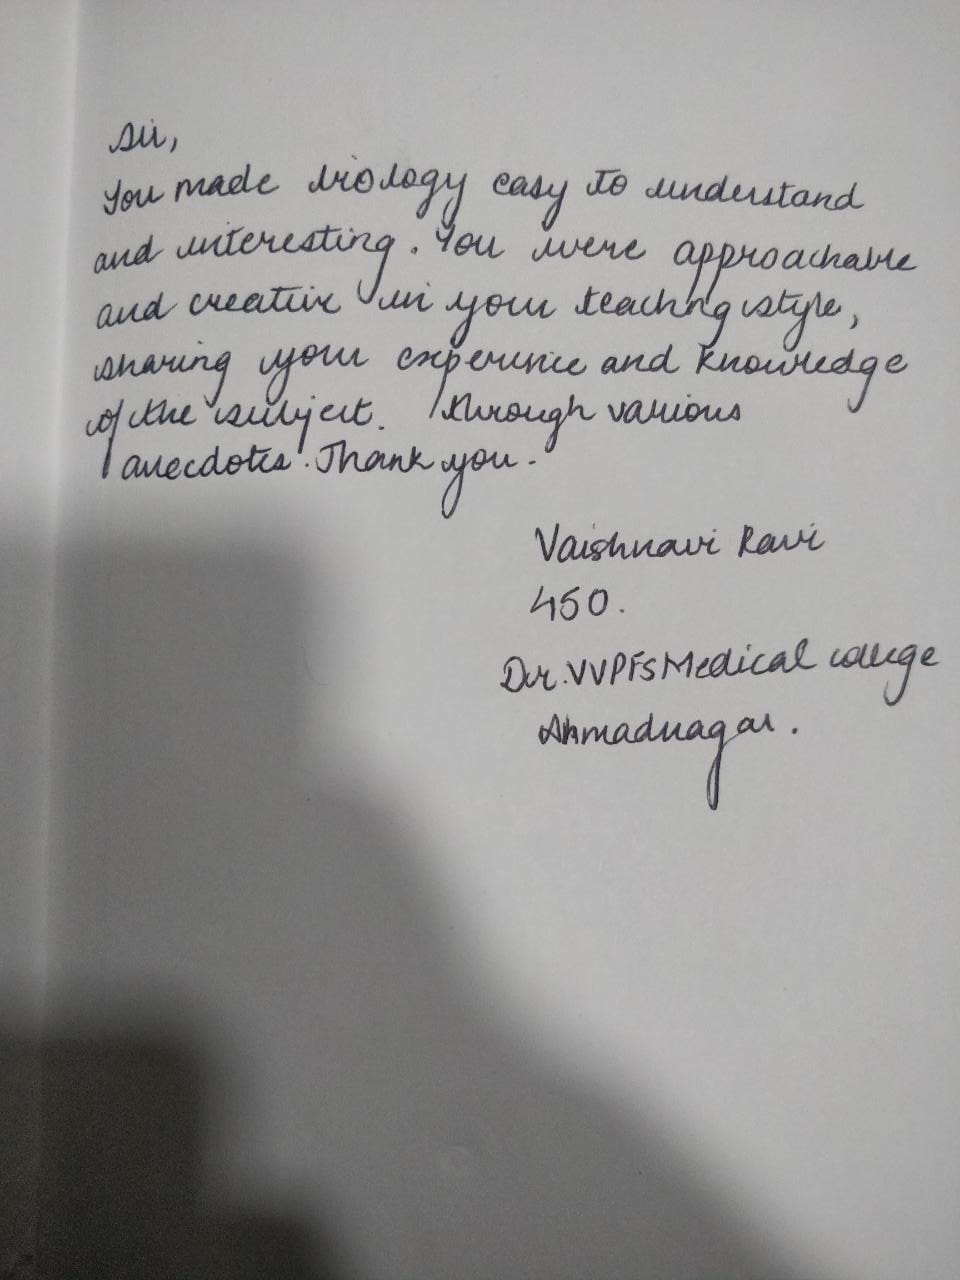 Sir,
You made biology easy to understand
and interesting. You were approachable
and creative in your teaching style,
sharing your experience and knowledge
of the subject. through various
anecdotes. Thank you.
Vaishnavi Ravi
450.
Dr. VVPFs Medical college
Ahmadnagar.